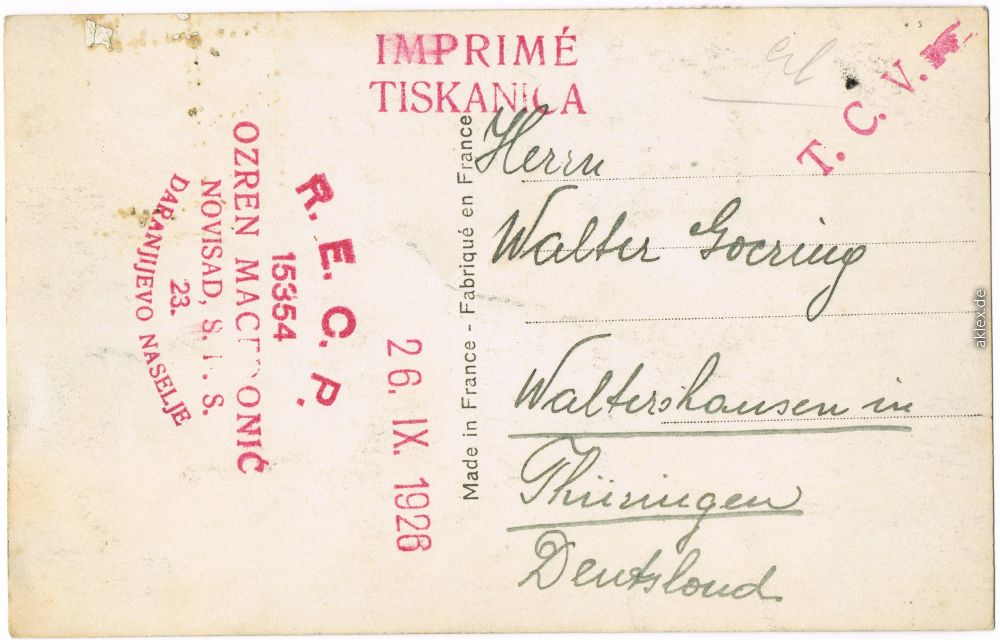 IMPRIMÉ
TISKANICA
T. C. V.
R. E. C. P.
15354
OZREN
NOVISAD, S. . S.
23.
DARANJIJEVO NASELJE
26. IX. 1926
Made in France - Fabriqué en France
Herrn
Walter Goering
Waltershausen in
Thüringen
Deutsloud
aklex.de